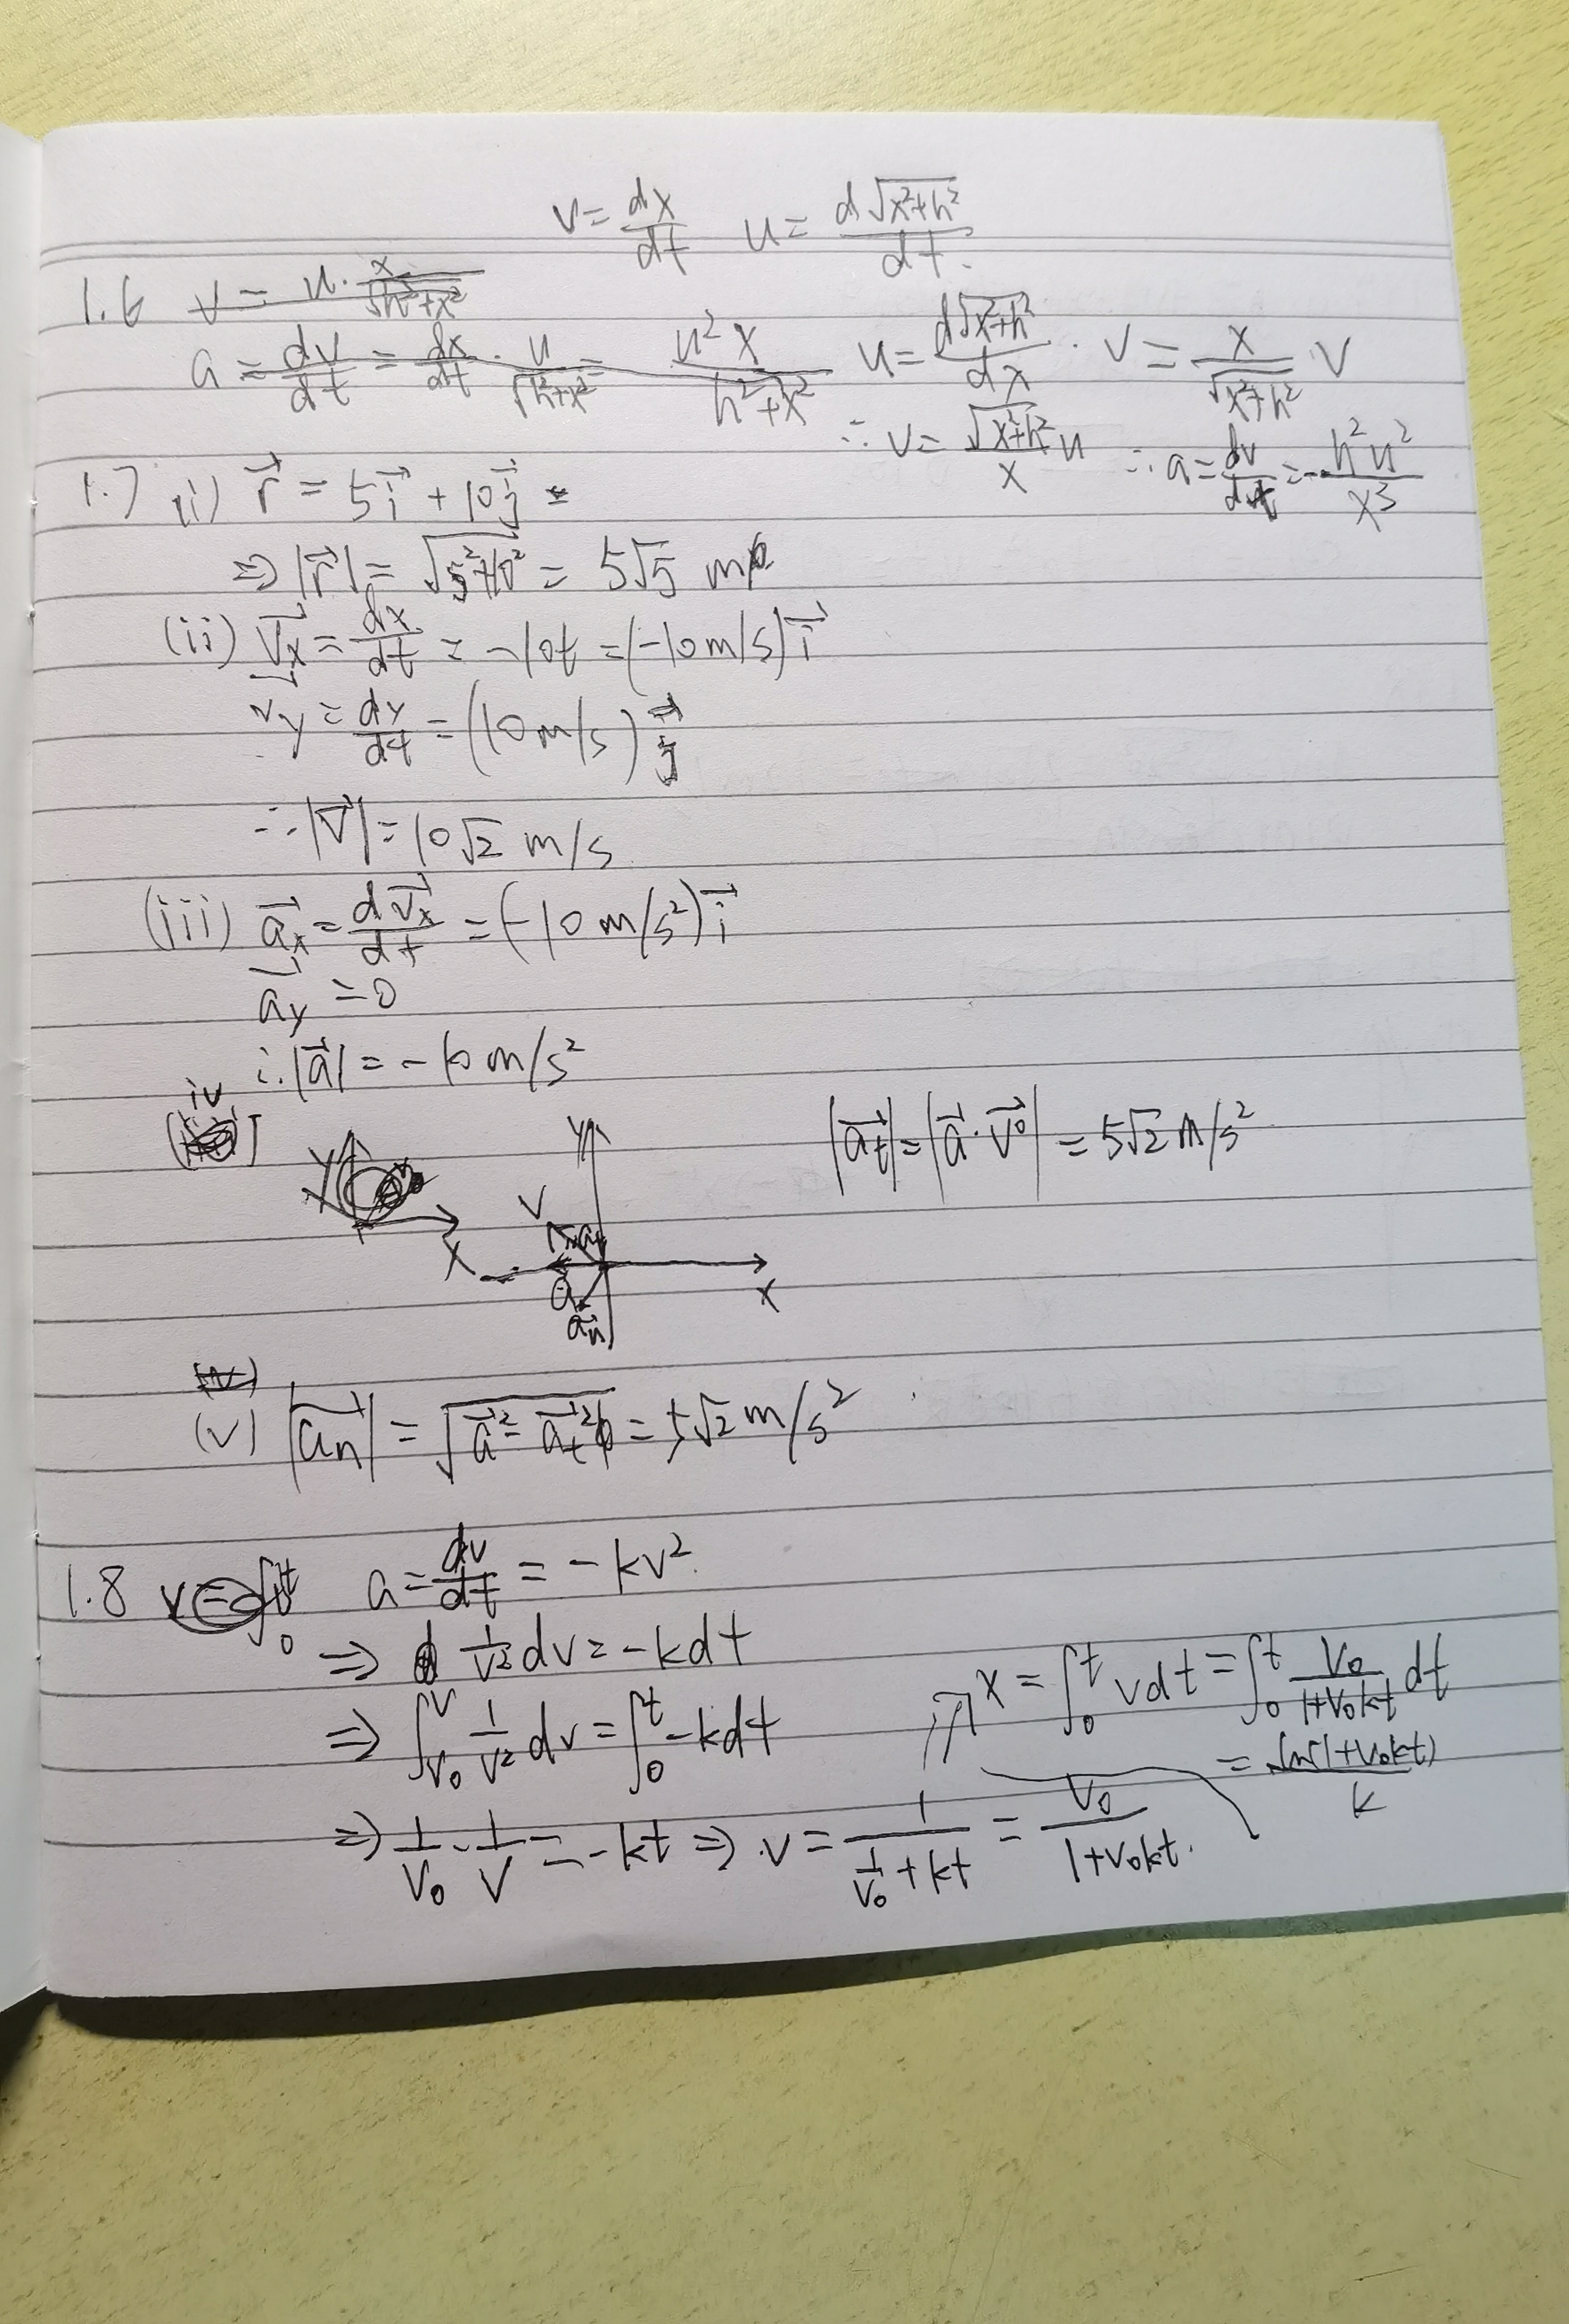 v = dx/dt  u = d√(x²+h²)/dt.
1.6 v = u · x/√(h²+x²)
a = dv/dt = dx/dt · u/√(h²+x²) = u²x/(h²+x²)  u = d√(x²+h²)/dx · v = x/√(x²+h²) v
∴ v = √(x²+h²)/x u  ∴ a = dv/dt = -h²u²/x³
1.7 (i) r⃗ = 5i⃗ + 10j⃗
⇒ |r⃗| = √(5²+10²) = 5√5 m
(ii) v⃗x = dx/dt = -10t = (-10m/s)i⃗
v⃗y = dy/dt = (10m/s)j⃗
∴ |v⃗| = 10√2 m/s
(iii) a⃗x = dv⃗x/dt = (-10m/s²)i⃗
a⃗y = 0
∴ |a⃗| = -10m/s²
(iv)
|a⃗t| = |a⃗ · v⃗⁰| = 5√2 m/s²
y
x
y
v
a
a⃗n
x
(v) |a⃗n| = √(a⃗² - a⃗t²) = 5√2 m/s²
1.8 a = dv/dt = -kv²
⇒ 1/v² dv = -kdt
⇒ ∫_{v₀}^{v} 1/v² dv = ∫_0^t -kdt
⇒ 1/v₀ - 1/v = -kt ⇒ v = 1/(1/v₀ + kt) = v₀/(1+v₀kt).
⇒ x = ∫_0^t vdt = ∫_0^t v₀/(1+v₀kt) dt
= ln(1+v₀kt)/k